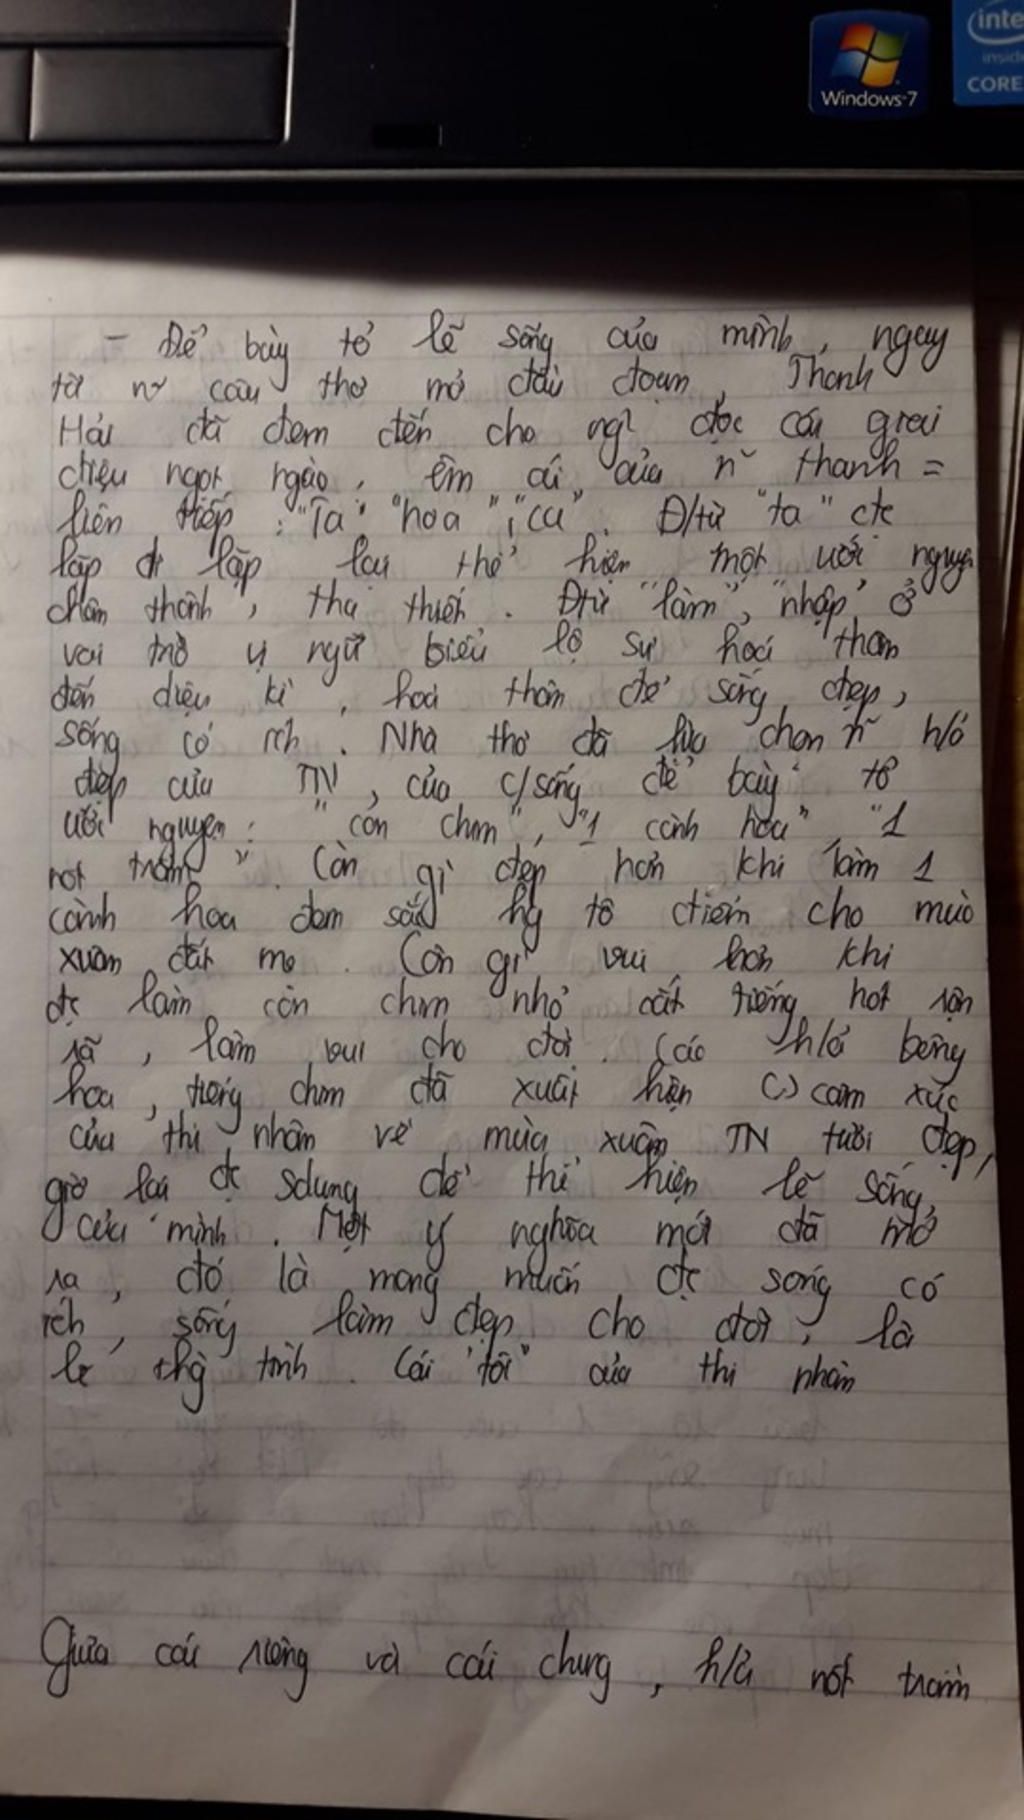 Windows 7
inte
inside
CORE
- Để bày tỏ lẽ sống của mình, ngay
từ n~ câu thơ mở đầu đoạn, Thanh
Hải đã đem đến cho ng` đọc cái giai
điệu ngọt ngào, êm ái của n~ thanh =
liên tiếp : "Ta" "hoa", "ca". Đ/từ "ta" đc
lặp đi lặp lại thể hiện một ước nguyện
chân thành, tha thiết. Đtừ "làm", "nhập" ở
vai trò vị ngữ biểu lộ sự hoá thân
đến diệu kì, hoá thân để sống đẹp,
sống có ích. Nhà thơ đã lựa chọn n~ h/ả
đẹp của TN, của c/sống để bày tỏ
ước nguyện: "con chim", "1 cành hoa", "1
nốt trầm". Còn gì đẹp hơn khi làm 1
cành hoa đem sắc hg tô điểm cho mùa
xuân đất mẹ. Còn gì vui hơn khi
đc làm con chim nhỏ cất tiếng hót rộn
rã, làm vui cho đời. Các h/ả bông
hoa, tiếng chim đã xuất hiện (-) cảm xúc
của thi nhân về mùa xuân TN tươi đẹp,
giờ lại đc sdụng để thể hiện lẽ sống
của mình. Một ý nghĩa mới đã mở
ra, đó là mong muốn đc sống có
ích, sống làm đẹp cho đời, là
lẽ thg tình. Cái "tôi" của thi nhân
Giữa cái riêng và cái chung, h/ả nốt trầm